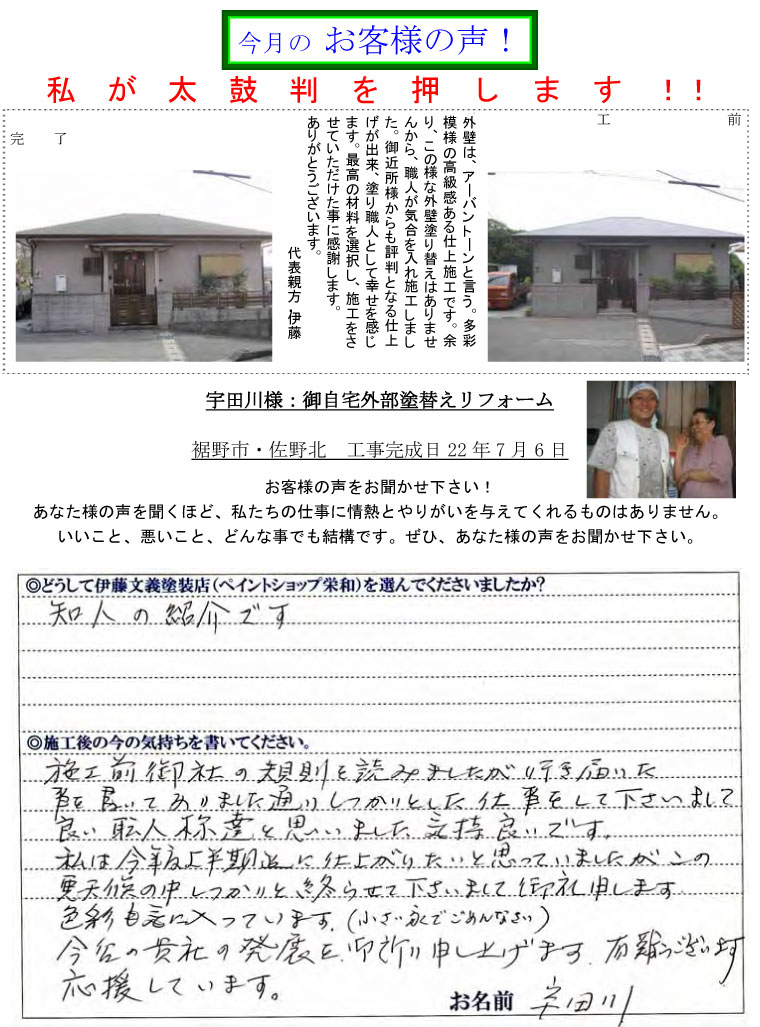 今月の お客様の声！
私が太鼓判を押します！！
工前
外壁は、アーバントーンと言う。多彩
模様の高級感ある仕上施工です。余
り、この様な外壁塗り替えはありませ
んから、職人が気合を入れ施工しまし
た。御近所様からも評判となる仕上
げが出来、塗り職人として幸せを感じ
ます。最高の材料を選択し、施工をさ
せていただけた事に感謝します。
ありがとうございます。
代表親方 伊藤
完了
宇田川様：御自宅外部塗替えリフォーム
裾野市・佐野北　工事完成日 22 年 7 月 6 日
お客様の声をお聞かせ下さい！
あなた様の声を聞くほど、私たちの仕事に情熱とやりがいを与えてくれるものはありません。
いいこと、悪いこと、どんな事でも結構です。ぜひ、あなた様の声をお聞かせ下さい。
◎どうして伊藤文義塗装店（ペイントショップ栄和）を選んでくださいましたか？
知人の紹介です
◎施工後の今の気持ちを書いてください。
施工前御社の規則を読みましたが行き届いた
事を書いてありました通りしっかりとした仕事をして下さいまして
良い職人様達と思いました。気持良いです。
私は今年度上半期迄に仕上がりたいと思っていましたがこの
悪天候の中しっかりと終らせて下さいまして御礼申します
色彩も気に入っています。（小さい　でごめんなさい）
今后の貴社の発展を、御祈り申し上げます。有難うございます
応援しています。
お名前 宇田川